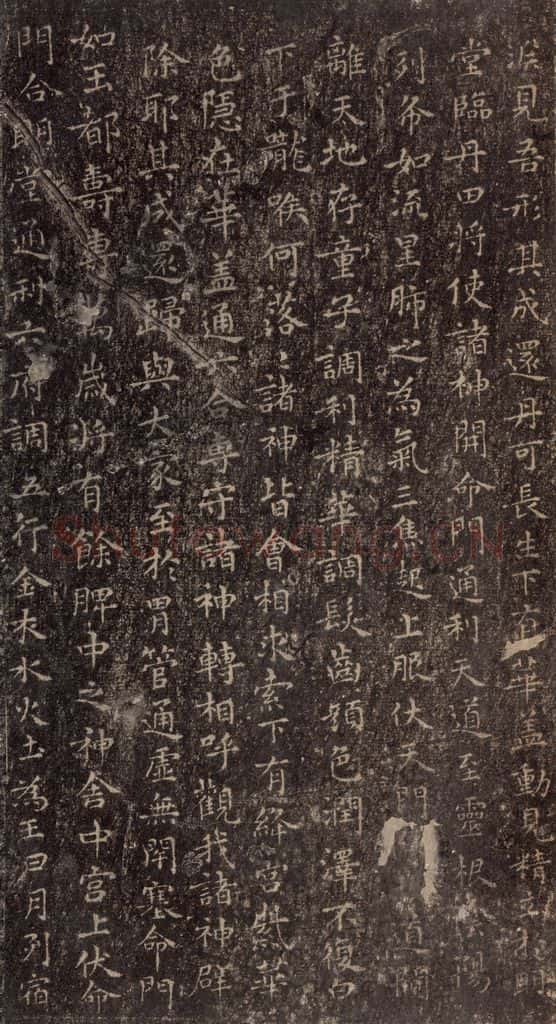 見吾形其成還丹可長生下有華盖動見精立於明
堂臨丹田將使諸神開命門通利天道至靈根陰陽
列布如流星肺之為氣三焦起上服伏天門道闚
離天地存童子調利精華調髮齒顏色潤澤不復白
下于嚨喉何落々諸神皆會相求索下有絳宮紫華
色隱在華盖通六合専守諸神轉相呼觀我諸神辟
除耶其成還歸與大家至於胃管通虛無閉塞命門
如玉都壽専萬歲將有餘脾中之神舍中宮上伏命
門合明堂通利六府調五行金木水火土為王日月列宿
Shufawang.CN